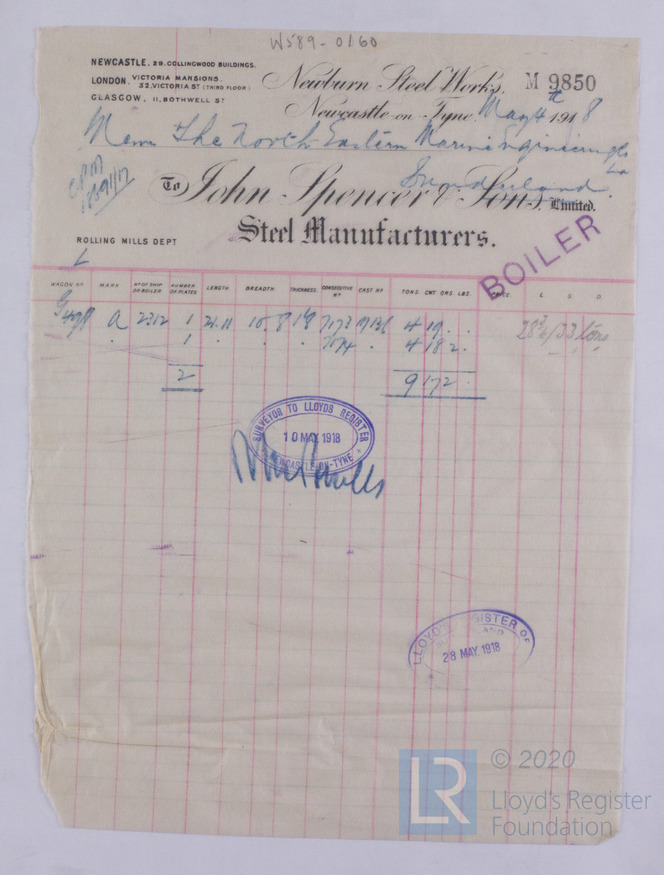 W589-0160
NEWCASTLE. 29. COLLINGWOOD BUILDINGS.
LONDON. VICTORIA MANSIONS.
32, VICTORIA ST (THIRD FLOOR)
GLASGOW, 11, BOTHWELL ST
Newburn Steel Works,
M 9850
Newcastle-on-Tyne, May 4th 1918
Messrs The North Eastern Marine Engineering Co
Ld
Sunderland.
To John Spencer & Sons, Limited.
Steel Manufacturers.
ROLLING MILLS DEPT
BOILER
WAGON Nº MARK Nº OF SHIP OR BOILER NUMBER OF PLATES LENGTH BREADTH THICKNESS CONSECUTIVE Nº CAST Nº TONS CWT QRS LBS. PRICE. L S D
a 2312 1 21.11 10.8 7173 4 19 . .
" 1 " " " 4 18 2 .
2 9 17 2 .
28¾/33 tons
SURVEYOR TO LLOYDS REGISTER
10 MAY 1918
NEWCASTLE-ON-TYNE
LLOYD'S REGISTER OF
28 MAY. 1918
LR
© 2020
Lloyd's Register
Foundation